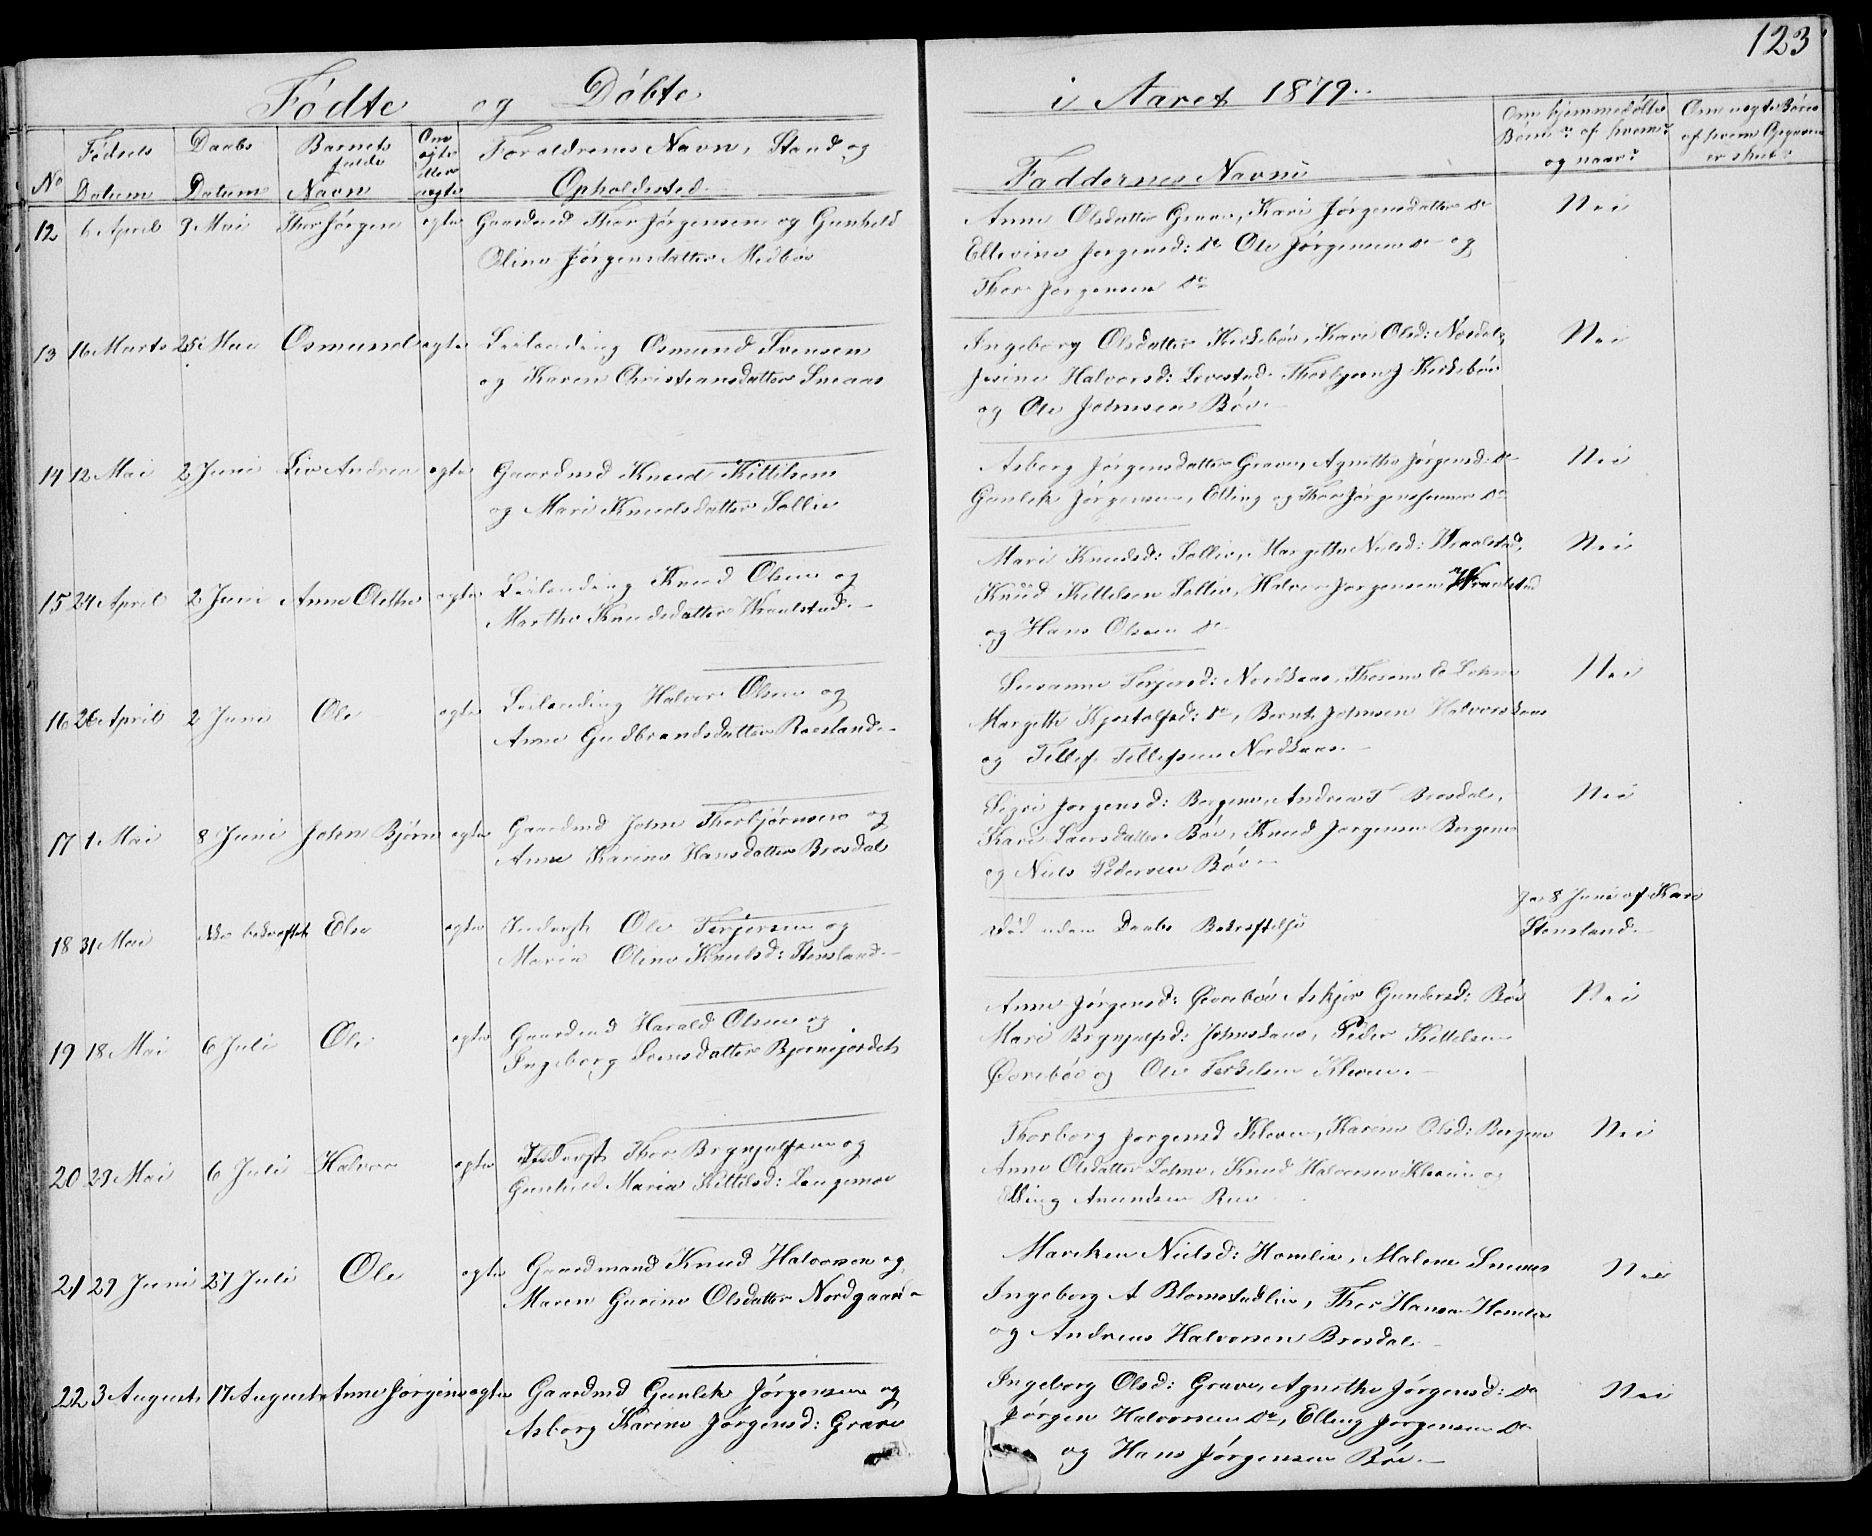 123
Fødte og Døbte i Aaret 1879.
No
Fødsels Datum
Daabs Datum
Barnets fulde Navn
Om ægte eller uægte
Forældrenes Navn, Stand og Opholdssted.
Faddernes Navne
Om hjemmedøbte Børn: af hvem? og naar?
Om uægte Børn af hvem Opgaven er skeet?
12 6 April 9 Mai Thor Jørgen ægte Gaardmd Thor Jørgensen og Gunhild
Oline Jørgensdatter Midbøe
Anne Olsdatter Grave, Kari Jørgensdatter Do
Ellevine Jørgensd: Do Ole Jørgensen Do og
Thor Jørgensen Do
Nei
13 16 Marts 25 Mai Osmund ægte Leilending Osmund Svensen
og Karen Christiansdatter Smaas
Ingeborg Olsdatter Kirkebøe, Kari Olsd:
Jesine Halvorsd: Lovestad. Kirkebøe
og Ole Johnsen Bøe.
Nei
14 12 Mai 2 Juni Liv Andrea ægte Gaardmd Knud Kittilsen
og Mari Knudsdatter Sollie
Asborg Jørgensdatter Grave, Agnethe Jørgensd: Do
Gunlek Jørgensen, Elling og Thor Jørgenssønner Do
Nei
15 24 April 2 Juni Anne Olethe ægte Leilending Knud Olsen og
Marthe Knudsdatter Wraalstad.
Mari Knudsd: Sollie, Margethe Nielsd: Wraalstad,
Knud Kittilsen Sollie, Halvor Jørgensen Wraalstad
og Hans Olsen Do
Nei
16 26 April 2 Juni Ole ægte Leilending Halvor Olsen og
Anne Gudbrandsdatter Roesland.
Susanne Terjersd: Nordskaas,
Margethe Do, Bernt Johnsen Halvorskaas
og Tellef Tellefsen Nordskaas.
Nei
17 1 Mai 8 Juni John Bjørn ægte Gaardmd John Thorbjørnsen og
Anne Karine Hansdatter Brosdal
Sigri Jørgensd: Bergene, Andrea T Brosdal,
Kari Larsdatter Bøe, Knud Jørgensen Bergene
og Niels Pedersen Bøe
Nei
18 31 Mai ikke bekræftet Else ægte Inderst Ole Terjersen og
Maria Oline Knudsd: Stensland.
Død uden Daabs Bekræftelse
Ja 8 Juni af Kari
Stensland.
19 18 Mai 6 Juli Ole ægte Gaardmd Harald Olsen og
Ingeborg Svensdatter Bjørnejordet
Anne Jørgensd: Øvrebøe Askjer Gundersd: Bøe
Mari Brynjulfsd: Johnskaas, Peder Kittilsen
Øvrebøe og Ole Terkelsen Kleven.
Nei
20 29 Mai 6 Juli Halvor ægte Inderst Thor Brynjulfsen og
Gunhild Maria Kittilsd: Laugemoe
Thorborg Jørgensd Kleven, Karine Olsd: Bergene
Anne Olsdatter Lohne, Knud Halvorsen Kleven og
Elling Amundsen Rue
Nei
21 29 Juni 27 Juli Ole ægte Gaardmand Knud Halvorsen og
Maren Gurine Olsdatter Nordgaard
Mareken Nielsd: Homlie, Malene Smaas
Ingeborg A Blomstadlie, Thor Hansen Homlie
og Andreas Halvorsen Brosdal.
Nei
22 3 August 17 August Anne Jørgine ægte Gaardmd Gunlek Jørgensen og
Asborg Karine Jørgensd: Grave
Ingeborg Olsd: Grave, Agnethe Jørgensd: Do
Jørgen Halvorsen Do, Elling Jørgensen Do
og Hans Jørgensen Bøe.
Nei